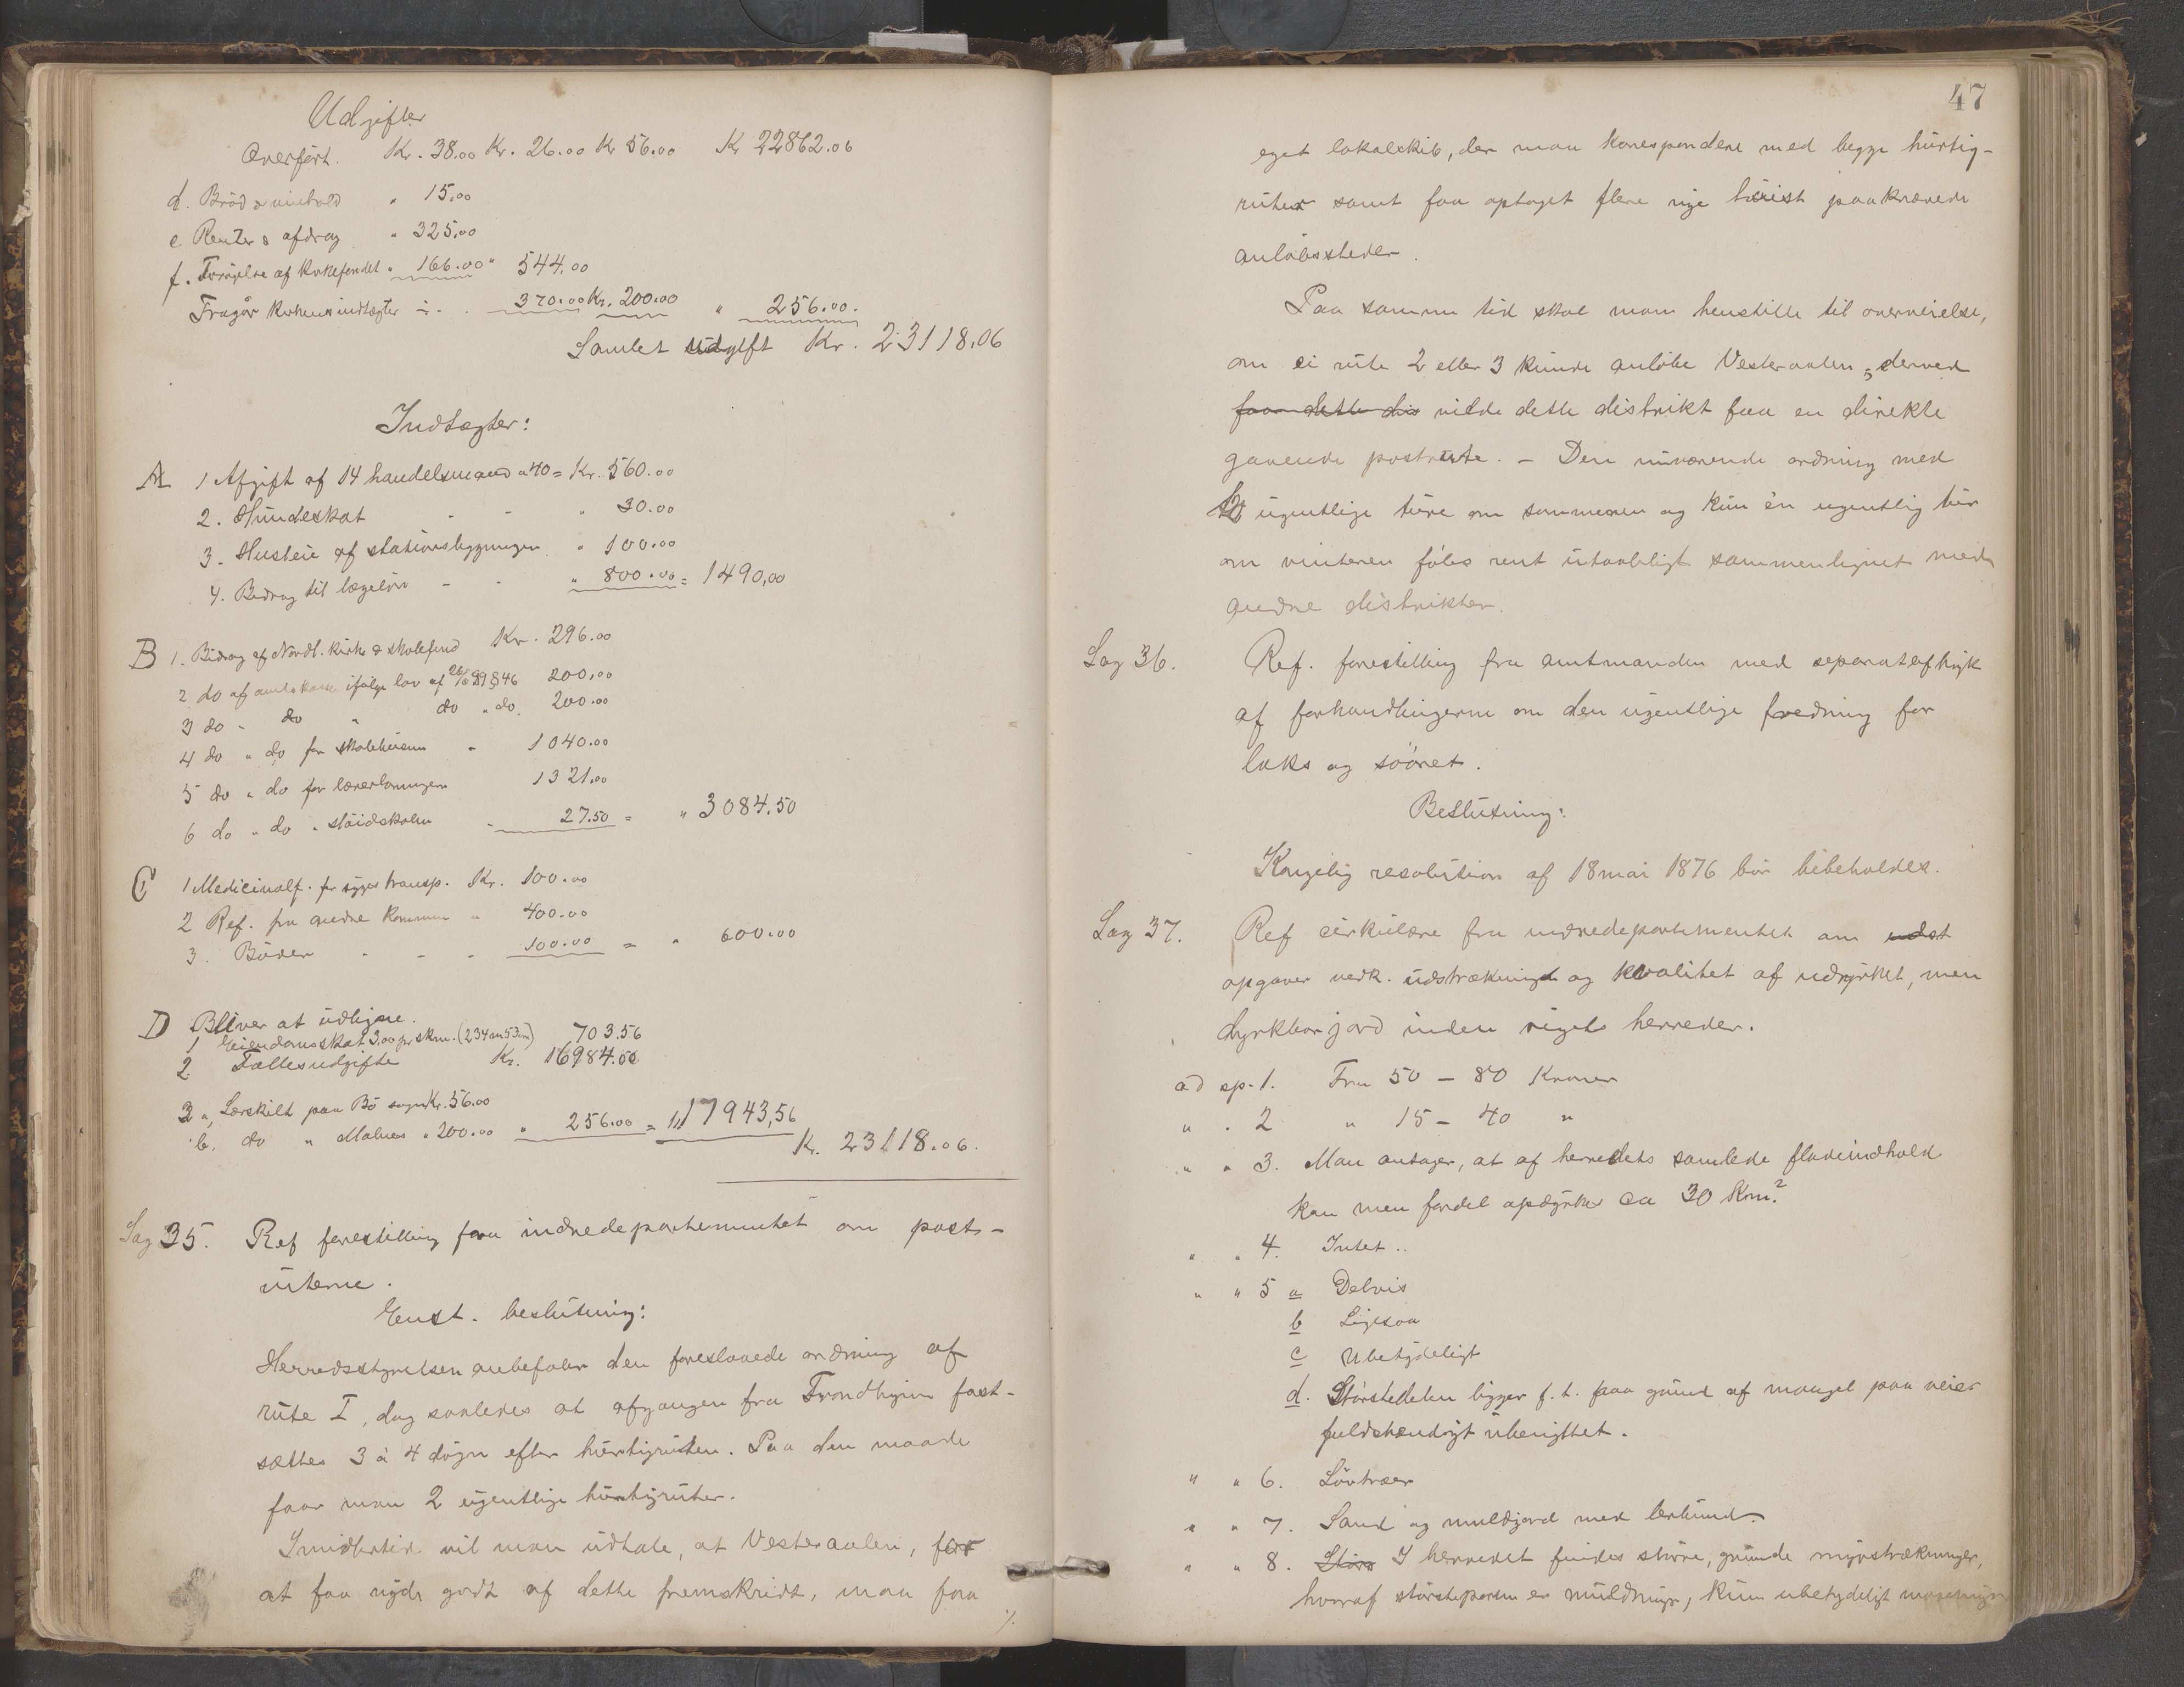 Udgifter
Overført. Kr. 38.00 Kr. 26.00 Kr 56.00 Kr 22862.06
d. Bröd & vinhold " 15,00
e Renter & afdrag " 325,00
f. Forøgelse af Kirkefondet " 166.00 " 544.00
Fragår Kirkens indtægter ÷ . 370.00 Kr. 200.00 " 256.00.
Samlet udgift Kr. 23118.06
Indtægter:
A 1 Afgift af 14 handelsmænd a 40 = Kr. 560.00
2. Hundeskat - - " 30.00
3. Husleie af stationsbygningen " 100.00
4. Bidrag til lægelön - - " 800.00 = 1490,00
B 1. Bidrag af Nordl. kirke & skolefond Kr. 296.00
2 do af amtskassen ifølge lov af 26/6 89 § 46 200,00
3 do - do " do " do. 200.00
4 do " do for skolehusene " 1040.00
5 do " do for lærerlönningen 1321.00
6 do " do " slöidskolen - 27.50 = " 3084.50
C 1 Medicinalf. for syges transp. Kr. 100.00
2 Ref. fra andre kommuner " 400.00
3. Böder - - - 100.00 = " 600.00
D Bliver at udligne.
1 Eiendomsskat 3,00 pr skm. (234 53) 703.56
2. Fællesudgifter Kr. 16984.00
3 a, Særskilt paa Bö sogn Kr. 56.00
b. do " Malnes " 200.00 " 256.00 = " 17943,56
Kr. 23118.06.
Sag 35. Ref forestilling fra indredepartementet om post-
ruterne.
Enst. beslutning:
Herredsstyrelsen anbefaler den foreslaaede ordning af
rute I, dog saaledes at afgangen fra Trondhjem fast-
sættes 3 à 4 dögn efter hurtigruten. Paa den maade
faar man 2 ugentlige hurtigruter.
Imidlertid vil man udtale, at Vesteraalen, for
at faa nyde godt af dette fremskridt, maa faa
·/.
47
eget lokalskib, der maa korrespondere med begge hurtig-
ruter samt faa optaget flere nye höist paakrævede
anløbssteder.
Paa samme tid skal man henstille til overveielse,
om ei rute 2 eller 3 kunde anløbe Vesteraalen, derved
faar dette dis vilde dette distrikt faa en direkte
gaaende postrute. - Den nuværende ordning med
2 ugentlige ture om sommeren og kun én ugentlig tur
om vinteren føles rent utaaleligt sammenlignet med
andre distrikter.
Sag 36. Ref. forestilling fra amtmanden med separataftryk
af forhandlingerne om den ugentlige fredning for
laks og søörret.
Beslutning:
Kongelig resolution af 18 mai 1876 bör bibeholdes.
Sag 37. Ref cirkulære fra indredepartementet om udst
opgaver vedk. udstrækning og kvalitet af udyrket, men
dyrkbar jord inden rigets herreder.
ad sp. 1. Fra 50 - 80 Kroner
" . 2 " 15 - 40 "
" " 3. Man antager, at af herredets samlede fladeindhold
kan men fordel opdyrkes ca 30 Km.²
" " 4. Intet..
" " 5 a Delvis
b Ligesaa
c Ubetydeligt
d. Störstedelen ligger f. t. paa grund af mangel paa veier
fuldstændigt uberyttet.
" " 6. Lövtræer
" " 7. Sand og muldjord med lerbund.
" " 8. Störs I herredet findes större, grunde myrstrækninger,
hvoraf störsteparten er muldmyr, kun ubetydeligt mosemyr